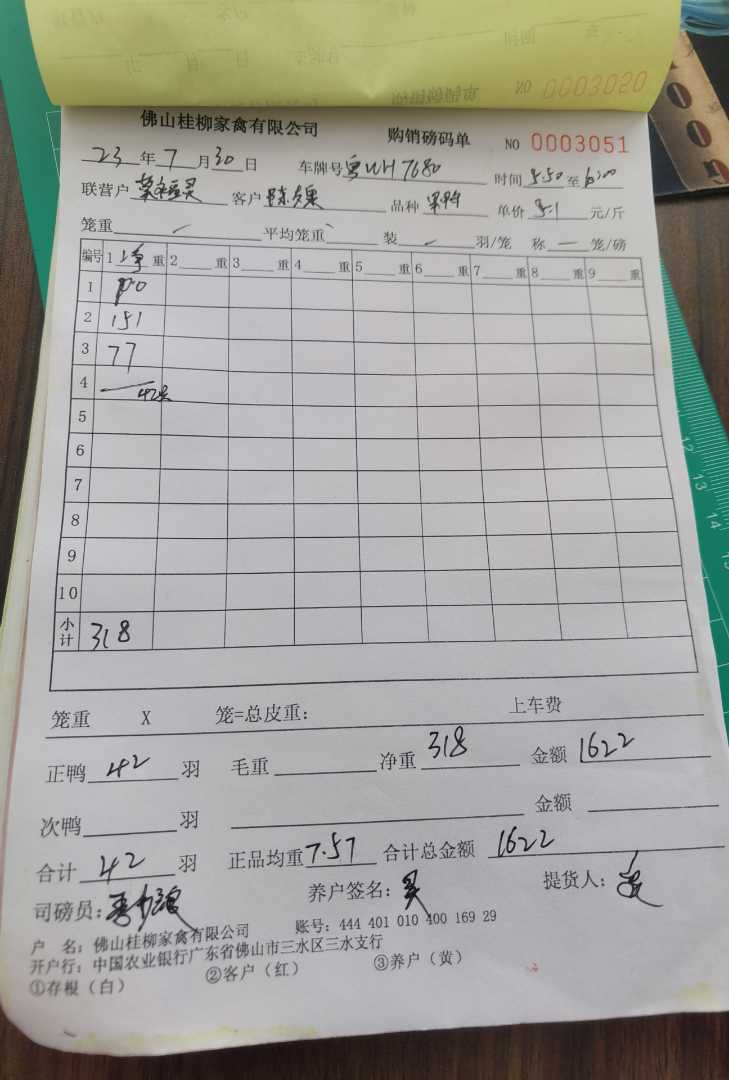 NO 0003020
佛山桂柳家禽有限公司 购销磅码单 NO 0003051
23年7月30日 车牌号粤WH7680 时间5:50至6:00
联营户 客户 品种 单价5.1元/斤
笼重 平均笼重 装 羽/笼 称 笼/磅
编号 1净重 2 重 3 重 4 重 5 重 6 重 7 重 8 重 9 重
1 90
2 151
3 77
4 42只
5
6
7
8
9
10
小计 318
笼重 X 笼=总皮重: 上车费
正鸭 42 羽 毛重 净重 318 金额 1622
次鸭 羽 金额
合计 42 羽 正品均重7.57 合计总金额 1622
司磅员: 养户签名: 提货人:
户 名: 佛山桂柳家禽有限公司 账号: 444 401 010 400 169 29
开户行: 中国农业银行广东省佛山市三水区三水支行
①存根(白) ②客户(红) ③养户(黄)